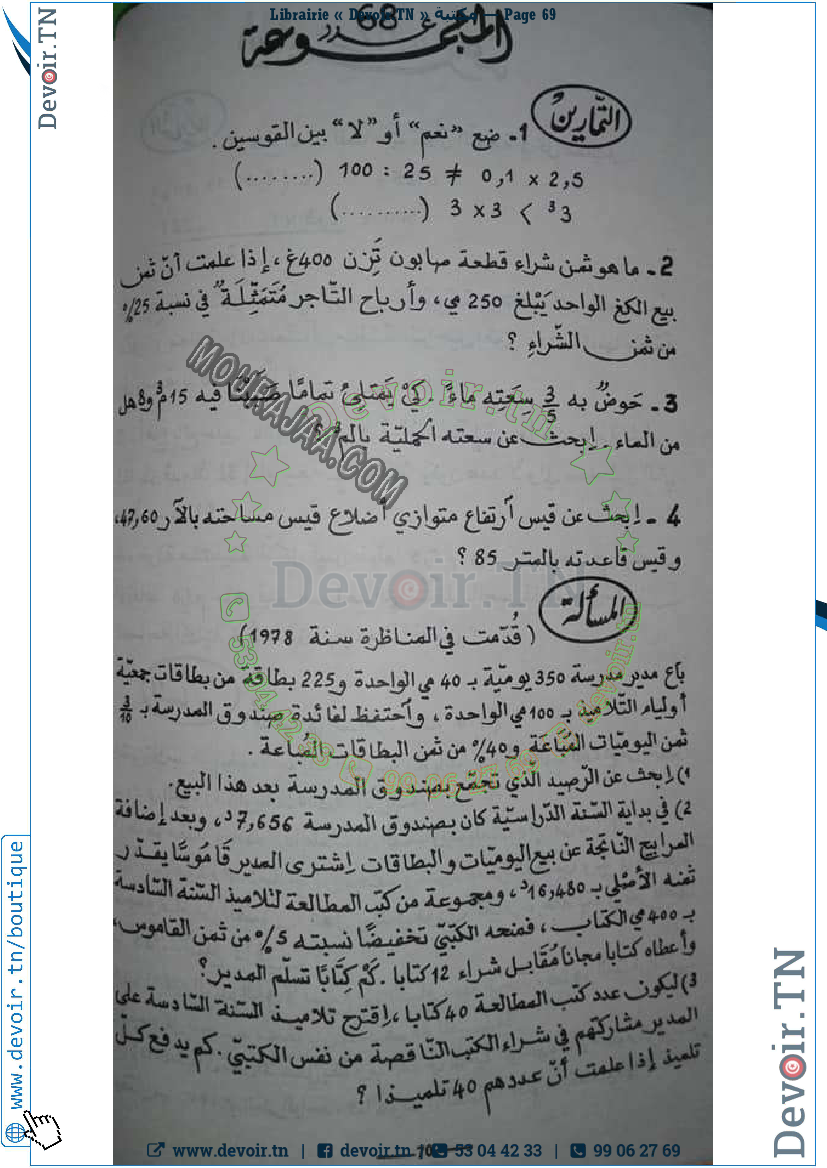 Librairie « Devoir.TN » مكتبة — Page 69
المجموعة عدد 68
التمارين
1- ضع "نعم" أو "لا" بين القوسين.
100 : 25 ≠ 0,1 x 2,5 (........)
3 x 3 < 3³ (.........)
2- ما هو ثمن شراء قطعة صابون تزن 400غ، إذا علمت أنّ ثمن
بيع الكغ الواحد يبلغ 250 مي، وأرباح التّاجر مُتَمَثِّلَةٌ في نسبة 25%
من ثمن الشّراءِ ؟
3- حَوضٌ به 3/5 سِعَتِه ماءً. كيْ يَمتلِئَ تمامًا صَبَبْنَا فيه 15م³ و8هل
من الماء. إبحث عن سعته الجمليّة بالم³ ؟
4- إبحث عن قيس أرتفاع متوازي أضلاع قيس مساحته بالآر 47,60،
وقيس قاعدته بالمتر 85 ؟
المسألة
(قُدّمت في المناظرة سنة 1978)
باع مدير مدرسة 350 يوميّة بـ 40 مي الواحدة و225 بطاقة من بطاقات جمعيّة
أولياء التّلاميذ بـ 100 مي الواحدة، وآحتفظ لفائدة صندوق المدرسة بـ 3/10
ثمن اليوميّات المُبَاعَة و40% من ثمن البطاقات المُباعة.
1) إبحث عن الرّصيد الّذي تجمّع بصندوق المدرسة بعد هذا البيع.
2) في بداية السّنة الدّراسيّة كان بصندوق المدرسة 7,656د، وبعد إضافة
المرابيح النّاتجة عن بيع اليوميّات والبطاقات إشترى المدير قَامُوسًا يقدّر
ثمنه الأصلي بـ 16,480د، ومجموعة من كتب المطالعة لتلاميذ السّنة السّادسة
بـ 400 مي الكتاب، فمنحه الكتبيّ تخفيضًا نسبته 5% من ثمن القاموس،
وأعطاه كتابا مجانًا مُقَابل شراء 12 كتابا. كَمْ كِتَابًا تسلّم المدير؟
3) ليكون عدد كتب المطالعة 40 كتابا، إقترح تلاميذ السّنة السّادسة على
المدير مشاركتهم في شراء الكتب النّاقصة من نفس الكتبيّ. كم يدفع كلّ
تلميذ إذا علمت أنّ عددهم 40 تلميذا ؟
MOURAJAA.COM
Devoir.tn
Devoir.TN
53 04 42 33
99 06 27 69
devoir.tn
Devoir.TN
www.devoir.tn/boutique
Devoir.TN
www.devoir.tn | devoir.tn | 53 04 42 33 | 99 06 27 69